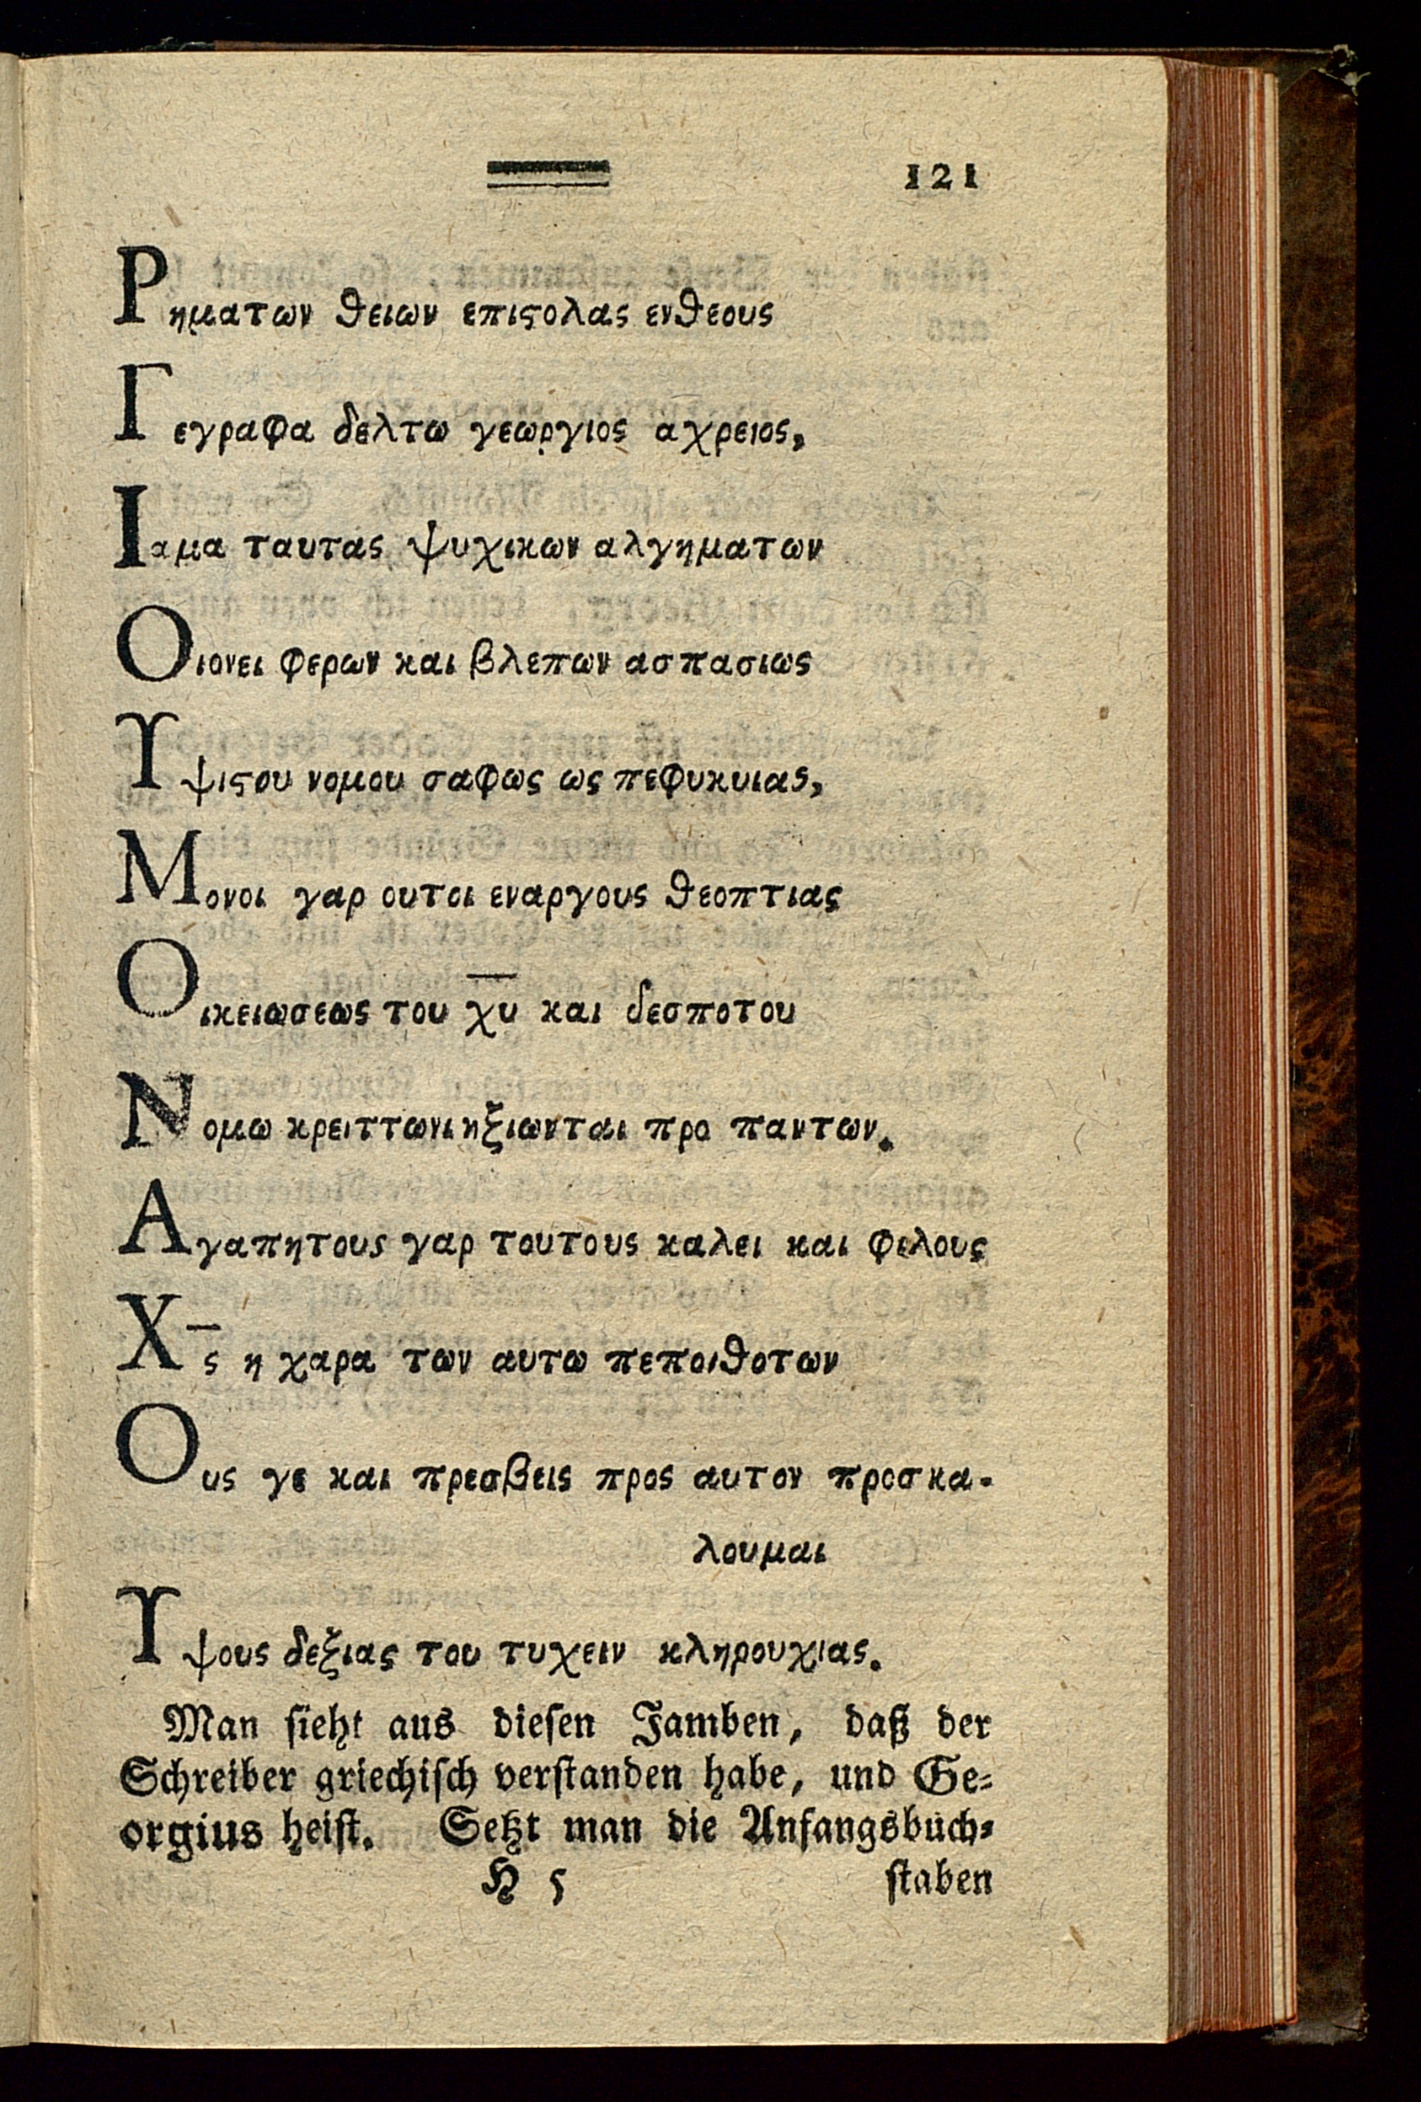 121
Ρηματων θειων επιϛολας ενθεους
Γεγραφα δελτω γεωργιος αχρειος,
Ιαμα ταυτας ψυχικων αλγηματων
Οιονει φερων και βλεπων ασπασιως
Υψιϛου νομου σαφως ως πεφυκυιας,
Μονοι γαρ ουτοι εναργους θεοπτιας
Οικειωσεως του χ̅υ̅ και δεσποτου
Νομω κρειττωνι ηξιωνται προ παντων.
Αγαπητους γαρ τουτους καλει και φελους
Χ̅ς η χαρα των αυτω πεποιθοτων
Ους γε και πρεσβεις προς αυτον προσκα-
λουμαι
Υψους δεξιας του τυχειν κληρουχιας.
Man ſieht aus dieſen Jamben, daß der
Schreiber griechiſch verſtanden habe, und Ge-
orgius heiſt. Setzt man die Anfangsbuch-
H 5 ſtaben